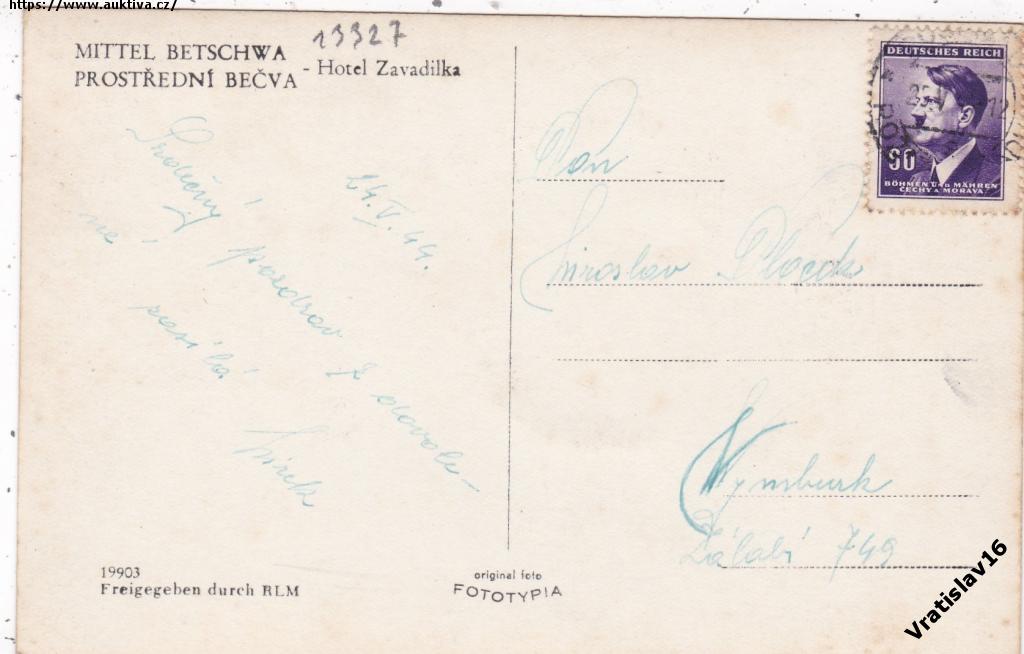 https://www.auktiva.cz/
13327
MITTEL BETSCHWA
PROSTŘEDNÍ BEČVA - Hotel Zavadilka
24. V. 44.
Srdečný
pozdrav z dovole-
né
posílá
Mirek
19903
Freigegeben durch RLM
original foto
FOTOTYPIA
DEUTSCHES REICH
90
BÖHMEN UND MÄHREN
ČECHY A MORAVA
Pan
Miroslav
Nymburk
Zálabí 749
Vratislav16